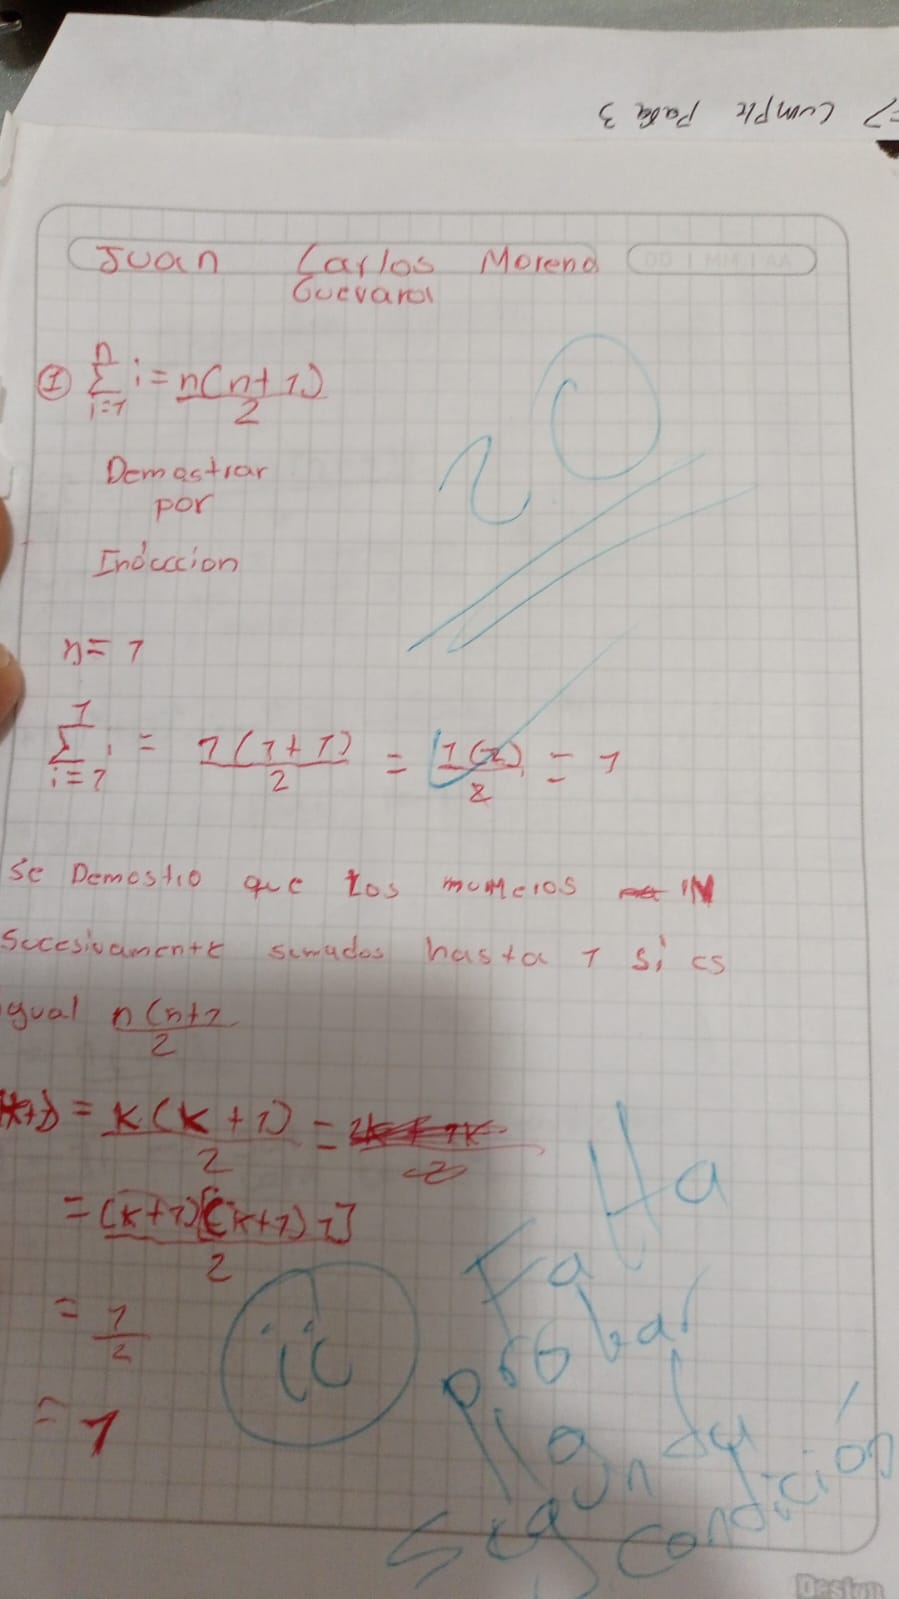 => Cumple Para 3
Juan Carlos Moreno
Guevara
DD | MM | AA
① n∑i=1 i = n(n+1)/2
20
Demostrar
por
Induccion
n = 1
1∑i=1 i = 1(1+1)/2 = 1(2)/2 = 1
Se Demostro que los numeros IN
Sucesivamente sumados hasta 1 si es
igual n(n+1/2
(k+1) = k(k+1)/2 =
= (k+1)[(k+1)1]/2
= 1/2
= 1
Falta
probar
la
segunda
condición
Design